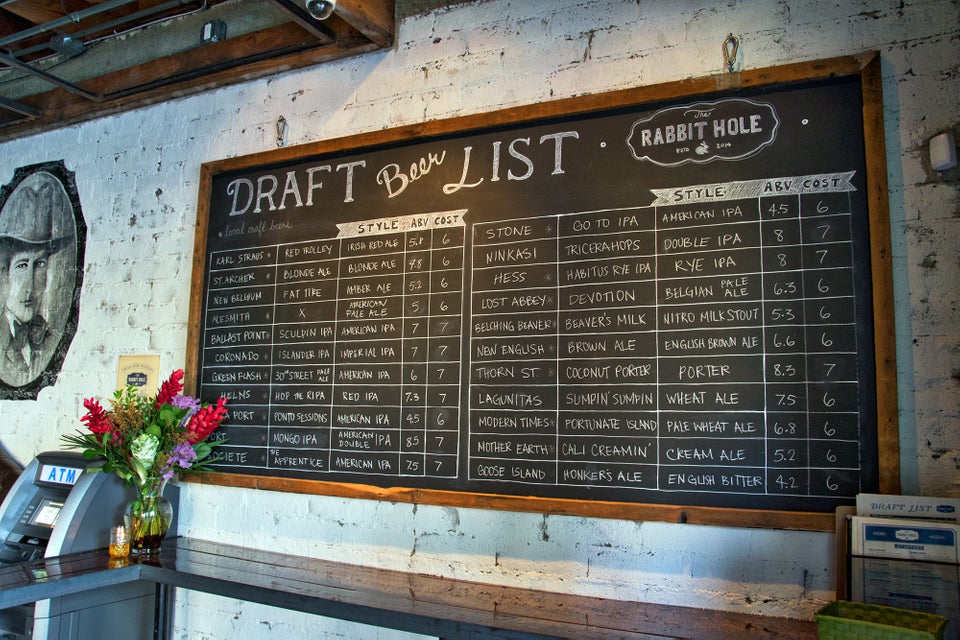 DRAFT Beer LIST
The
RABBIT HOLE
ESTD 2014
* local craft beers
STYLE ABV COST
KARL STRAUS * RED TROLLEY IRISH RED ALE 5.8 6
ST. ARCHER * BLONDE ALE BLONDE ALE 4.8 6
NEW BELGIUM FAT TIRE AMBER ALE 5.2 6
ALESMITH * X AMERICAN PALE ALE 5 6
BALLAST POINT * SCULPIN IPA AMERICAN IPA 7 7
CORONADO * ISLANDER IPA IMPERIAL IPA 7 7
GREEN FLASH * 30TH STREET PALE ALE AMERICAN IPA 6 7
HELMS * HOP THE RIPA RED IPA 7.3 7
A PORT * PONTO SESSIONS AMERICAN IPA 4.5 6
ORT * MONGO IPA AMERICAN DOUBLE IPA 8.5 7
SOCIETE * THE APPRENTICE AMERICAN IPA 7.5 7
STYLE ABV COST
STONE * GO TO IPA AMERICAN IPA 4.5 6
NINKASI TRICERAHOPS DOUBLE IPA 8 7
HESS * HABITUS RYE IPA RYE IPA 8 7
LOST ABBEY * DEVOTION BELGIAN PALE ALE 6.3 6
BELCHING BEAVER * BEAVER'S MILK NITRO MILK STOUT 5.3 6
NEW ENGLISH * BROWN ALE ENGLISH BROWN ALE 6.6 6
THORN ST * COCONUT PORTER PORTER 8.3 7
LAGUNITAS SUMPIN' SUMPIN WHEAT ALE 7.5 6
MODERN TIMES * FORTUNATE ISLAND PALE WHEAT ALE 6.8 6
MOTHER EARTH * CALI CREAMIN' CREAM ALE 5.2 6
GOOSE ISLAND HONKER'S ALE ENGLISH BITTER 4.2 6
ATM
RABBIT HOLE
DRAFT LIST